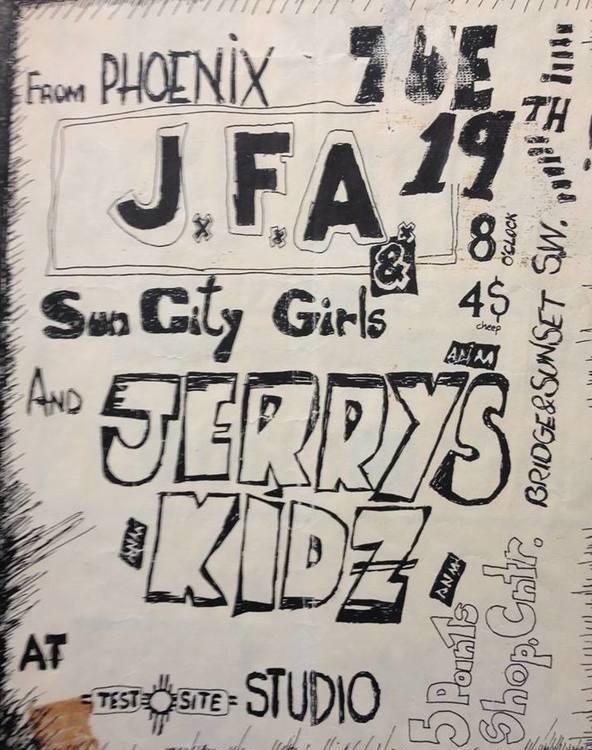 From PHOENIX
TUE
19TH
J.F.A
&
8 O'CLOCK
4$
cheep
Sun City Girls
And JERRYS
KIDZ
AT
TEST SITE STUDIO
BRIDGE & SUNSET S.W.
5 Points
Shop. Cntr.